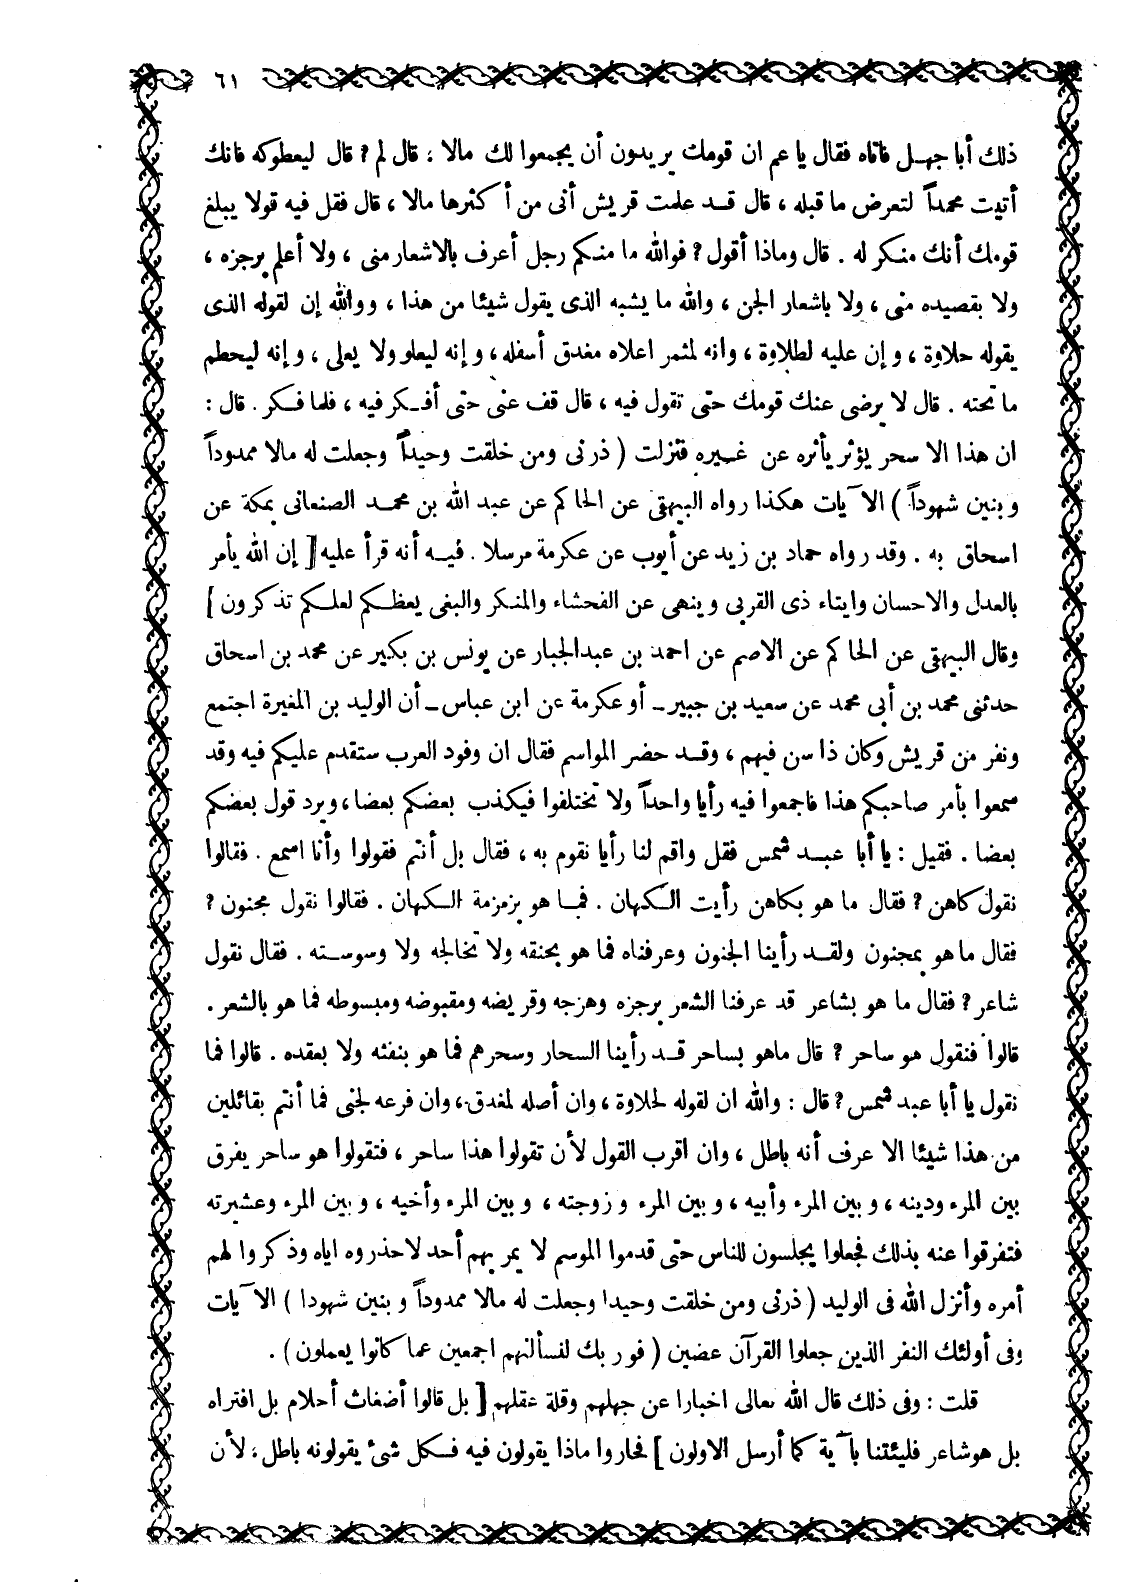 ٦١
ذلك أبا جهل فاتاه فقال يا عم ان قومك يريدون أن يجمعوا لك مالا ؛ قال لم ? قال ليعطوكه فانك
أتيت محمداً لتعرض ما قبله ، قال قد علمت قريش أنى من أكثرها مالا ، قال فقل فيه قولا يبلغ
قومك أنك منكر له . قال وماذا أقول ? فوالله ما منكم رجل أعرف بالاشعار منى ، ولا أعلم برجزه ،
ولا بقصيده منى ، ولا باشعار الجن ، والله ما يشبه الذى يقول شيئا من هذا ، ووالله إن لقوله الذى
يقوله حلاوة ، وإن عليه لطلاوة ، وانه لمثمر اعلاه مغدق أسفله ، وإنه ليعلو ولا يعلى ، وإنه ليحطم
ما تحته . قال لا يرضى عنك قومك حتى تقول فيه ، قال قف عنى حتى أفكر فيه ، فلما فكر . قال :
ان هذا الا سحر يؤثر يأثره عن غيره فنزلت ( ذرنى ومن خلقت وحيداً وجعلت له مالا ممدوداً
وبنين شهوداً ) الآيات هكذا رواه البيهقى عن الحاكم عن عبد الله بن محمد الصنعانى بمكة عن
اسحاق به . وقد رواه حماد بن زيد عن أيوب عن عكرمة مرسلا . فيه أنه قرأ عليه [ إن الله يأمر
بالعدل والاحسان وايتاء ذى القربى وينهى عن الفحشاء والمنكر والبغى يعظكم لعلكم تذكرون ]
وقال البيهقى عن الحاكم عن الاصم عن احمد بن عبدالجبار عن يونس بن بكير عن محمد بن اسحاق
حدثنى محمد بن أبى محمد عن سعيد بن جبير ـ أو عكرمة عن ابن عباس ـ أن الوليد بن المغيرة اجتمع
ونفر من قريش وكان ذا سن فيهم ، وقد حضر المواسم فقال ان وفود العرب ستقدم عليكم فيه وقد
سمعوا بأمر صاحبكم هذا فاجمعوا فيه رأيا واحداً ولا تختلفوا فيكذب بعضكم بعضا ، ويرد قول بعضكم
بعضا . فقيل : يا أبا عبد شمس فقل واقم لنا رأيا نقوم به ، فقال بل أنتم فقولوا وأنا اسمع . فقالوا
نقول كاهن ? فقال ما هو بكاهن رأيت الكهان . فما هو بزمزمة الكهان . فقالوا نقول مجنون ?
فقال ما هو بمجنون ولقد رأينا الجنون وعرفناه فما هو بخنقه ولا تخالجه ولا وسوسته . فقال نقول
شاعر ? فقال ما هو بشاعر قد عرفنا الشعر برجزه وهزجه وقريضه ومقبوضه ومبسوطه فما هو بالشعر .
قالوا فنقول هو ساحر ? قال ماهو بساحر قد رأينا السحار وسحرهم فما هو بنفثه ولا بعقده . قالوا فما
نقول يا أبا عبد شمس ? قال : والله ان لقوله لحلاوة ، وان أصله لمغدق ، وان فرعه لجنى فما أنتم بقائلين
من هذا شيئا الا عرف أنه باطل ، وان اقرب القول لأن تقولوا هذا ساحر ، فتقولوا هو ساحر يفرق
بين المرء ودينه ، وبين المرء وأبيه ، وبين المرء وزوجته ، وبين المرء وأخيه ، وبين المرء وعشيرته
فتفرقوا عنه بذلك فجعلوا يجلسون للناس حتى قدموا الموسم لا يمر بهم أحد لاحذروه اياه وذكروا لهم
أمره وأنزل الله فى الوليد ( ذرنى ومن خلقت وحيدا وجعلت له مالا ممدوداً وبنين شهودا ) الآيات
وفى أولئك النفر الذين جعلوا القرآن عضين ( فوربك لنسألنهم اجمعين عما كانوا يعملون ) .
قلت : وفى ذلك قال الله تعالى اخبارا عن جهلهم وقلة عقلهم [ بل قالوا أضغاث أحلام بل افتراه
بل هو شاعر فليئتنا بآية كما أرسل الاولون ] فحاروا ماذا يقولون فيه فكل شئ يقولونه باطل ؛ لأن